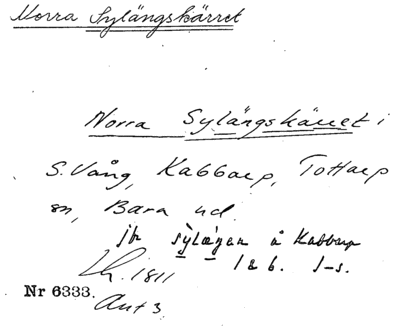 Norra Sylängskärret
Norra Sylängskärret i
S. Vång, Kabbarp, Tottarp
sn, Bara hd.
jfr sylængen å Kabbarp
1 & 6. I-s.
Lk. 1811
Nr 6333.
Akt 3